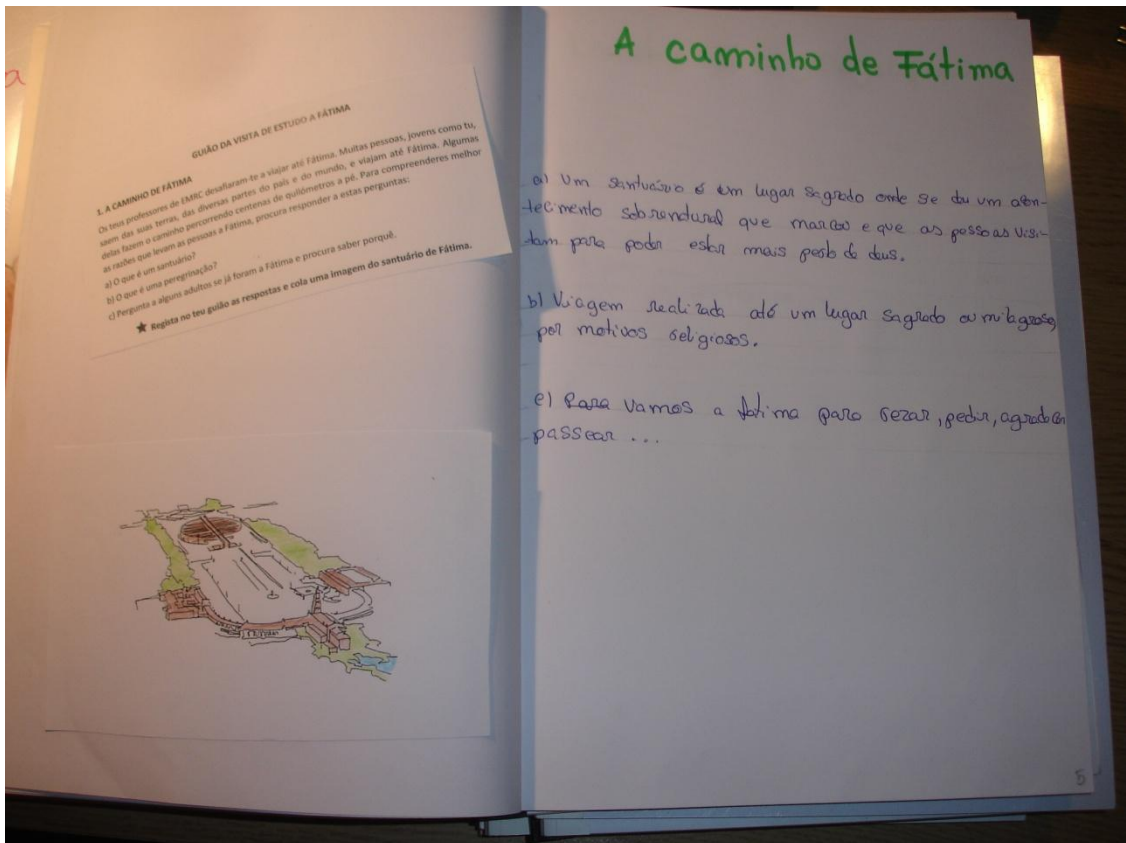 a
GUIÃO DA VISITA DE ESTUDO A FÁTIMA
1. A CAMINHO DE FÁTIMA
Os teus professores de EMRC desafiaram-te a viajar até Fátima. Muitas pessoas, jovens como tu,
saem das suas terras, das diversas partes do país e do mundo, e viajam até Fátima. Algumas
delas fazem o caminho percorrendo centenas de quilómetros a pé. Para compreenderes melhor
as razões que levam as pessoas a Fátima, procura responder a estas perguntas:
a) O que é um santuário?
b) O que é uma peregrinação?
c) Pergunta a alguns adultos se já foram a Fátima e procura saber porquê.
★ Regista no teu guião as respostas e cola uma imagem do santuário de Fátima.
A caminho de Fátima
a) Um santuário é um lugar sagrado onde se da um acon-
tecimento sobrendural que marcou e que as pessoas visi-
tam para poder estar mais perto de deus.
b) Viagem realizada até um lugar sagrado ou milagroso,
por motivos religiosos.
c) Para Vamos a fatima para rezar, pedir, agradecer
passear ...
5